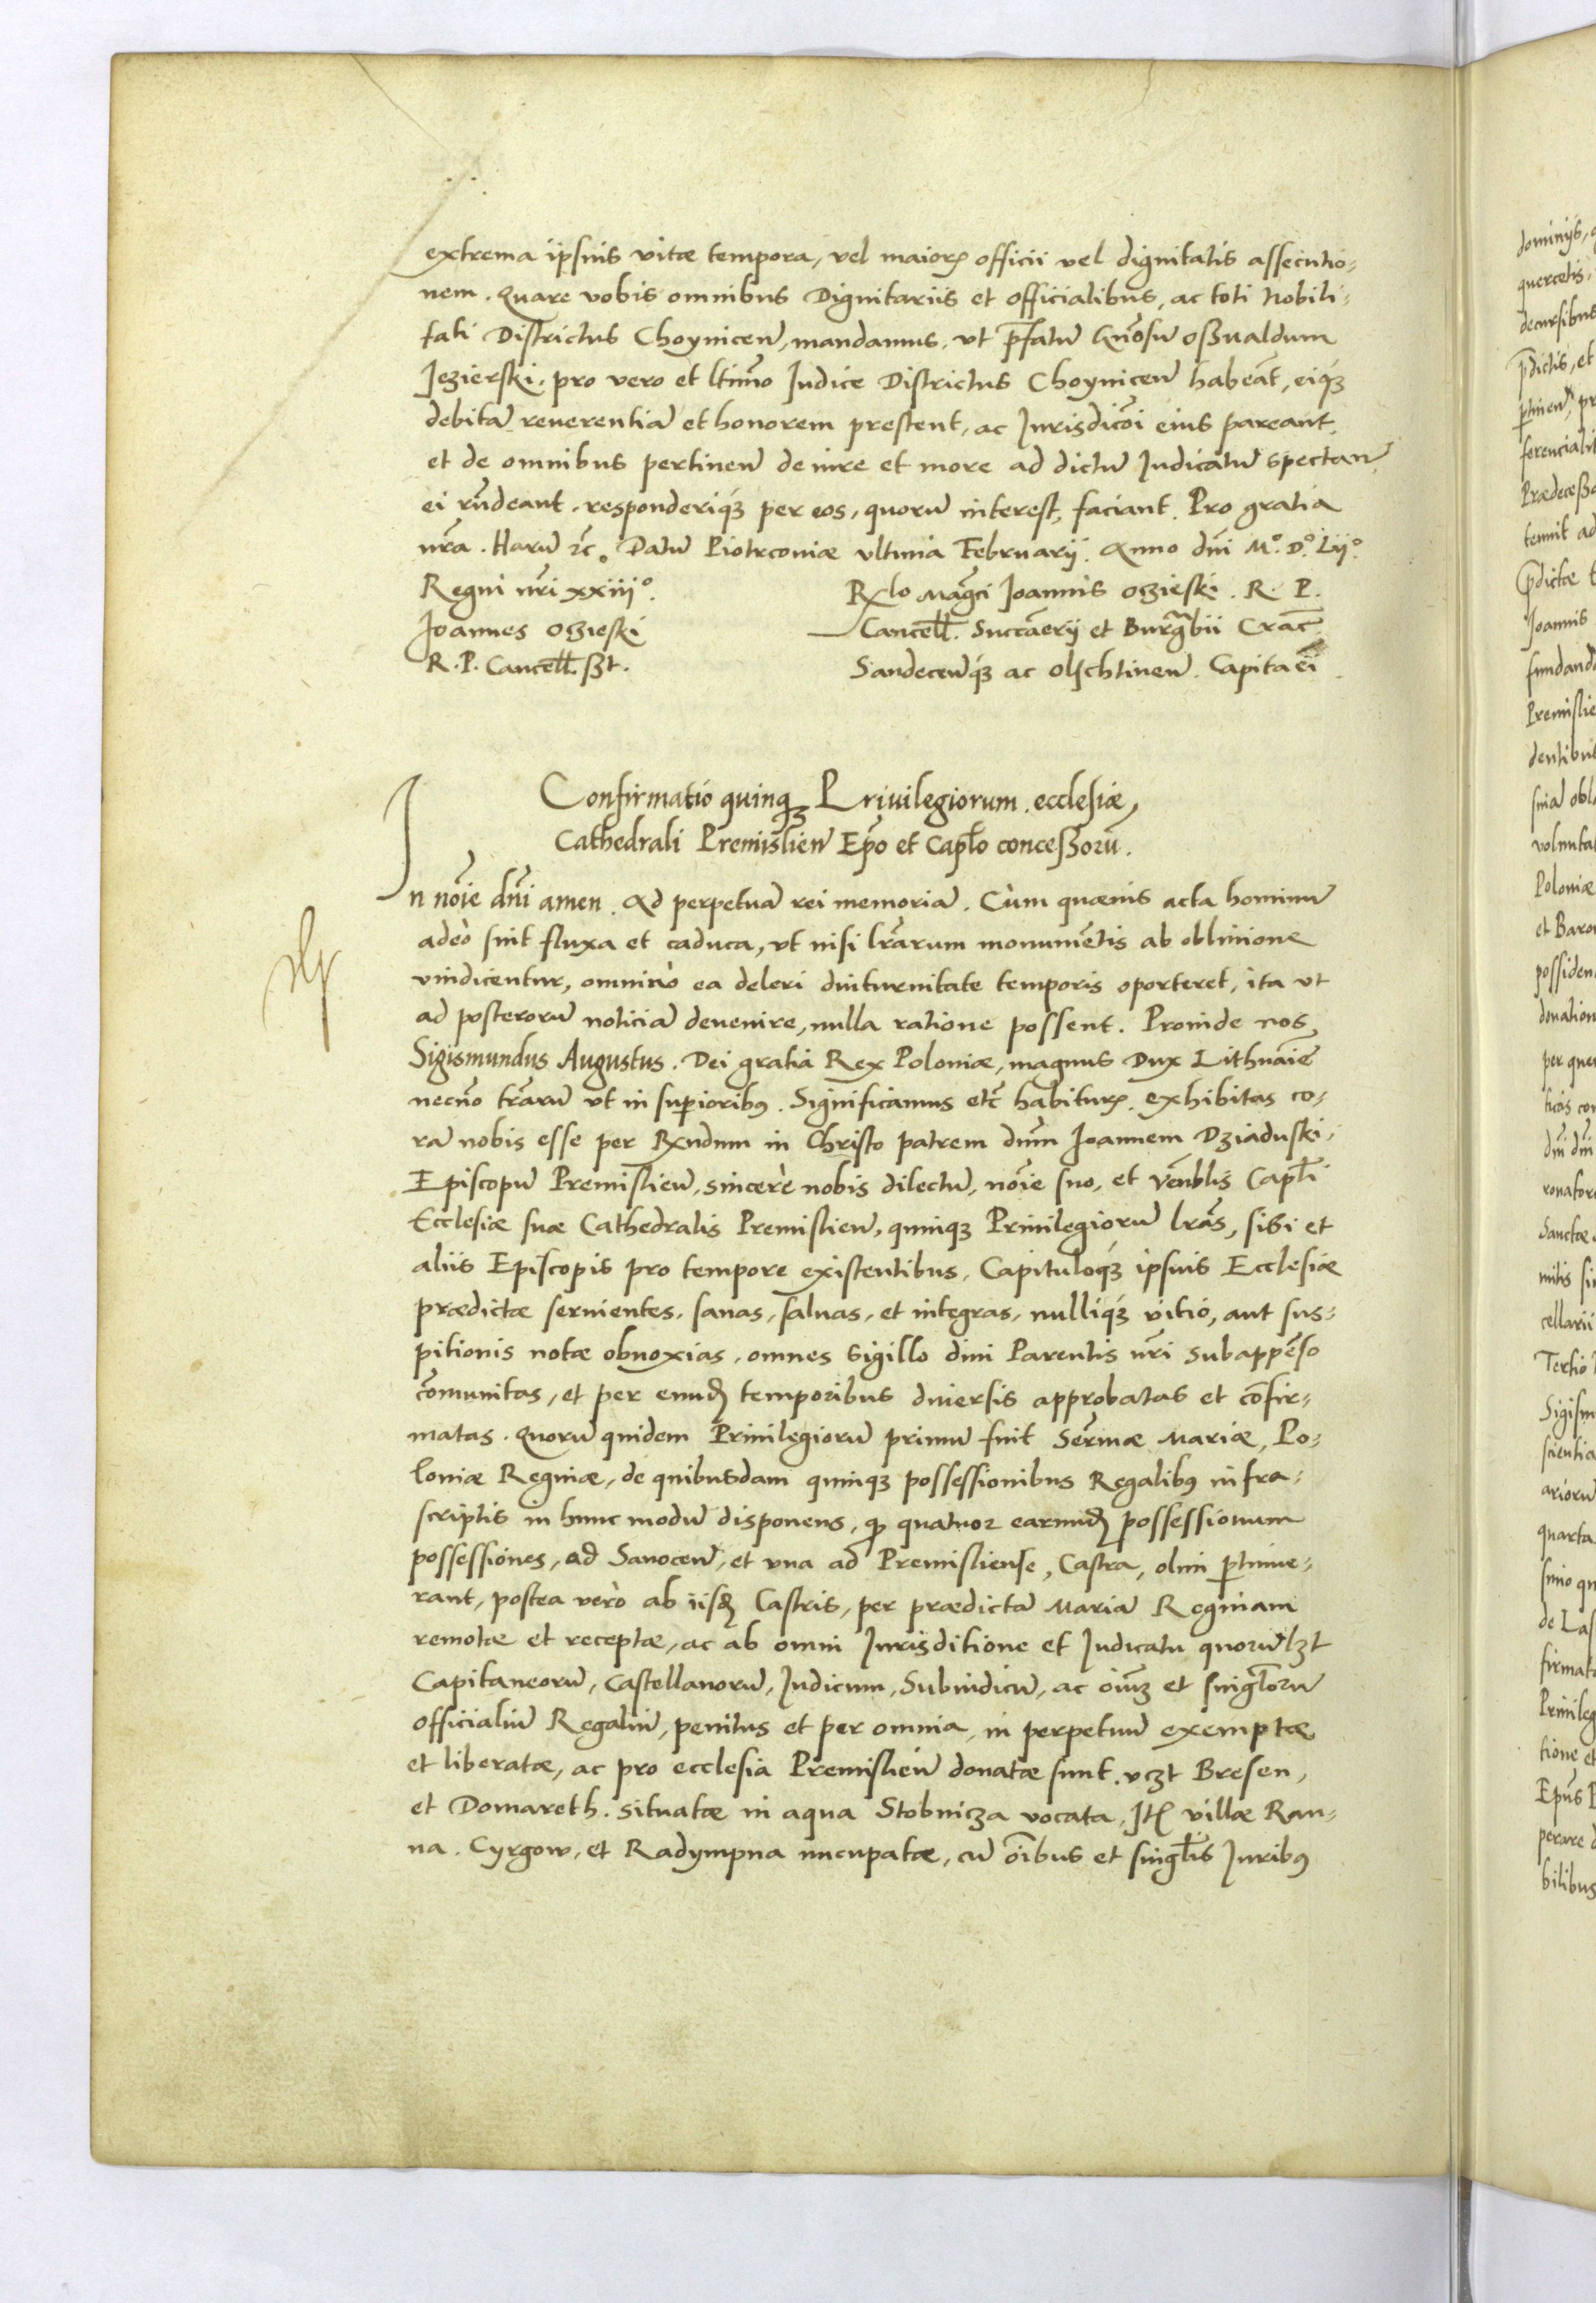 extrema ipsius vitæ tempora, vel maioris officii vel dignitatis assecutio-
nem. Quare vobis omnibus Dignitariis et officialibus, ac toti Nobili-
tati Districtus Choynicen̄, mandamus, vt p̄fatū Gn̄osū Oßualdum
Jezierski, pro vero et ltimo Iudice Districtus Choynicen̄ habeāt, eiq́ꝫ
debitā reuerentiā et honorem prestent, ac Iurisdicōi eius pareant,
et de omnibus pertinen̄ de iure et more ad dictū Iudicatū spectan̄
ei rn̄deant, responderiq́ꝫ per eos, quorū interest, faciant. Pro gratia
nr̄a. Harū ꝛc̄. Datū Piotrconiæ vltima Februarij. Anno dn̄i M.º D.º Lij.º
Regni nr̄i xxiij.º
Joannes Oczieski
R. P. Cancell̄. ßt.
Rxlo Mag̃ci Joannis Oczieski. R. P.
Cancell̄. Succāerij et Burg̃bii Crac̄.
Sandecen̄q́ꝫ ac Olschtinen̄. Capitaēi
Confirmatio quinqꝫ Priuilegiorum, ecclesiæ
Cathedrali Premislien̄ Ep̄o et Capl̄o conceßorū.
In nōie dn̄i amen. Ad perpetuā rei memoriā. Cùm quæuis acta hominū
adeò sint fluxa et caduca, vt nisi lr̄arum monumētis ab obliuione
vindicentur, omninò ea deleri diuturnitate temporis oporteret, ita vt
ad posterorū noticiā deuenire, nulla ratione possent. Proinde nos
Sigismundus Augustus. Dei gratia Rex Poloniæ, magnus Dux Lithuāiē
necn̄o tr̄arū vt in superioribꝰ. Significamus etc̄ habiturꝭ. exhibitas co-
rā nobis esse per Rxndum in Christo patrem dnm̄ Joannem Dziaduski,
Episcopū Premislien̄, sincerè nobis dilectū, nōie suo, et Ven̄blis Capl̄i
Ecclesiæ suæ Cathedralis Premislien̄, quinqꝫ Priuilegiorū lr̄as, sibi et
aliis Episcopis pro tempore existentibus, Capituloq́ꝫ ipsius Ecclesiæ
prædictæ seruientes, sanas, saluas, et integras, nulliq́ꝫ vitio, aut sus-
pitionis notæ obnoxias, omnes Sigillo diui Parentis nr̄i subappēso
cōmunitas, et per eundꝭ temporibus diuersis approbatas et cōfir-
matas. Quorū quidem Priuilegiorū primū fuit Ser̄mæ Mariæ, Po-
loniæ Reginæ, de quibusdam quinqꝫ possessionibus Regalibꝰ infra-
scriptis in hunc modū disponens, qꝫ quatuor earundꝭ possessionum
possessiones, ad Sanocen̄, et vna ad Premisliense, Castra, olim ꝑtinue-
rant, postea verò ab iisdꝭ Castris, per prædictā Mariā Reginam
remotæ et receptæ, ac ab omni Iurisditione et Iudicatu quorūlꝫt
Capitaneorū, Castellanorū, Iudicum, Subiudicū, ac oiūꝫ et singl̄orū
officialiū Regaliū, penitus et per omnia, in perpetuū exemptæ
et liberatæ, ac pro ecclesia Premislien̄ donatæ sunt. vꝫt Bresen,
et Domareth, situatæ in aqua Stobnicza vocata, Itꝭ villæ Ran-
na, Cyrgow, et Radympna nucupatæ, cū ōibus et singl̄is Iuribꝰ